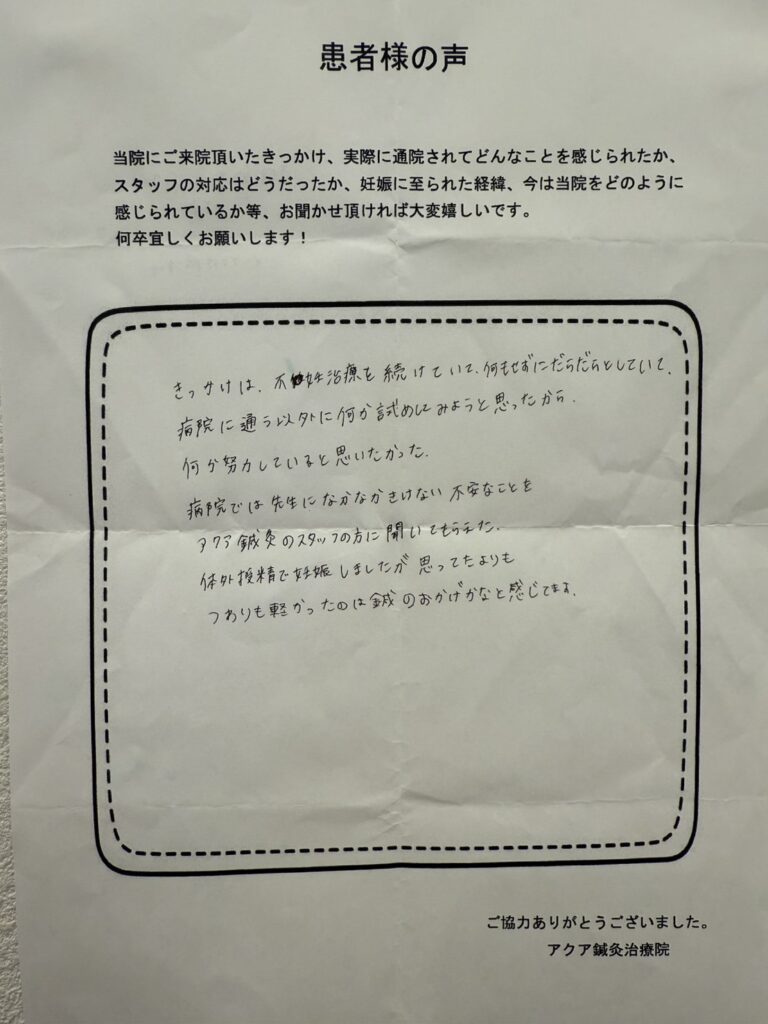 患者様の声
当院にご来院頂いたきっかけ、実際に通院されてどんなことを感じられたか、
スタッフの対応はどうだったか、妊娠に至られた経緯、今は当院をどのように
感じられているか等、お聞かせ頂ければ大変嬉しいです。
何卒宜しくお願いします！
きっかけは、不妊治療を続けていて、何もせずにだらだらとしていて、
病院に通う以外に何か試めしてみようと思ったから。
何か努力していると思いたかった。
病院では先生になかなかきけない不安なことを
アクア鍼灸のスタッフの方に聞いてもらえた。
体外授精で妊娠しましたが思ってたよりも
つわりも軽かったのは鍼のおかげかなと感じてます。
ご協力ありがとうございました。
アクア鍼灸治療院